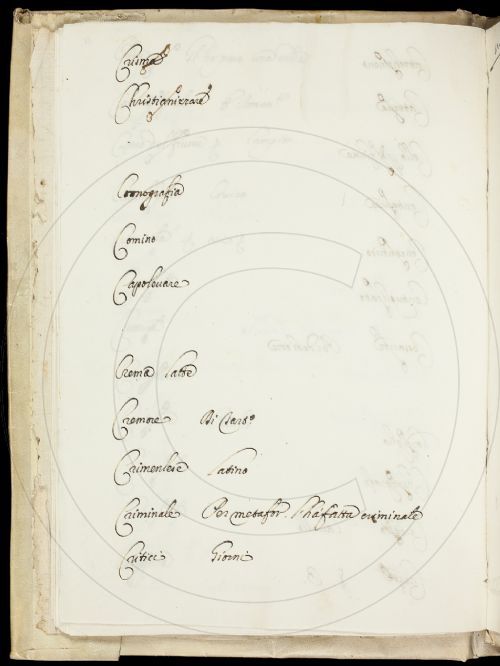 Crisma
Christianizzare
Coonografia
Comino
Capolevare
Crema latte
Cremore Di Tars.º
Crimenlese latino
Criminale Per metafor. l'hà fatta criminale
Critici Giorni